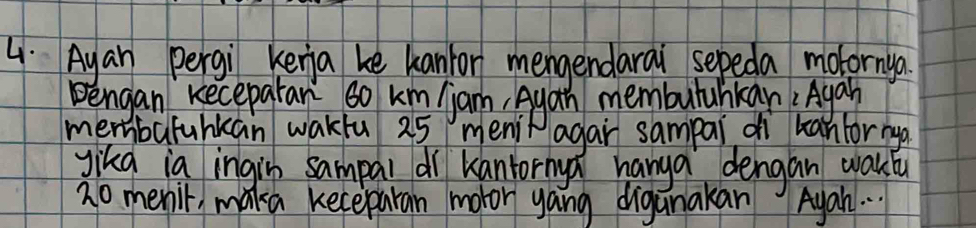 4. Ayah pergi kerja ke kantor mengendarai sepeda motornya.
Dengan kecepatan 60 km/jam, Ayah membutuhkan, Ayah
membutuhkan waktu 25 menit agar sampai di kantornya.
jika ia ingin sampai di kantornya hanya dengan waktu
20 menit, maka kecepatan motor yang digunakan Ayah...